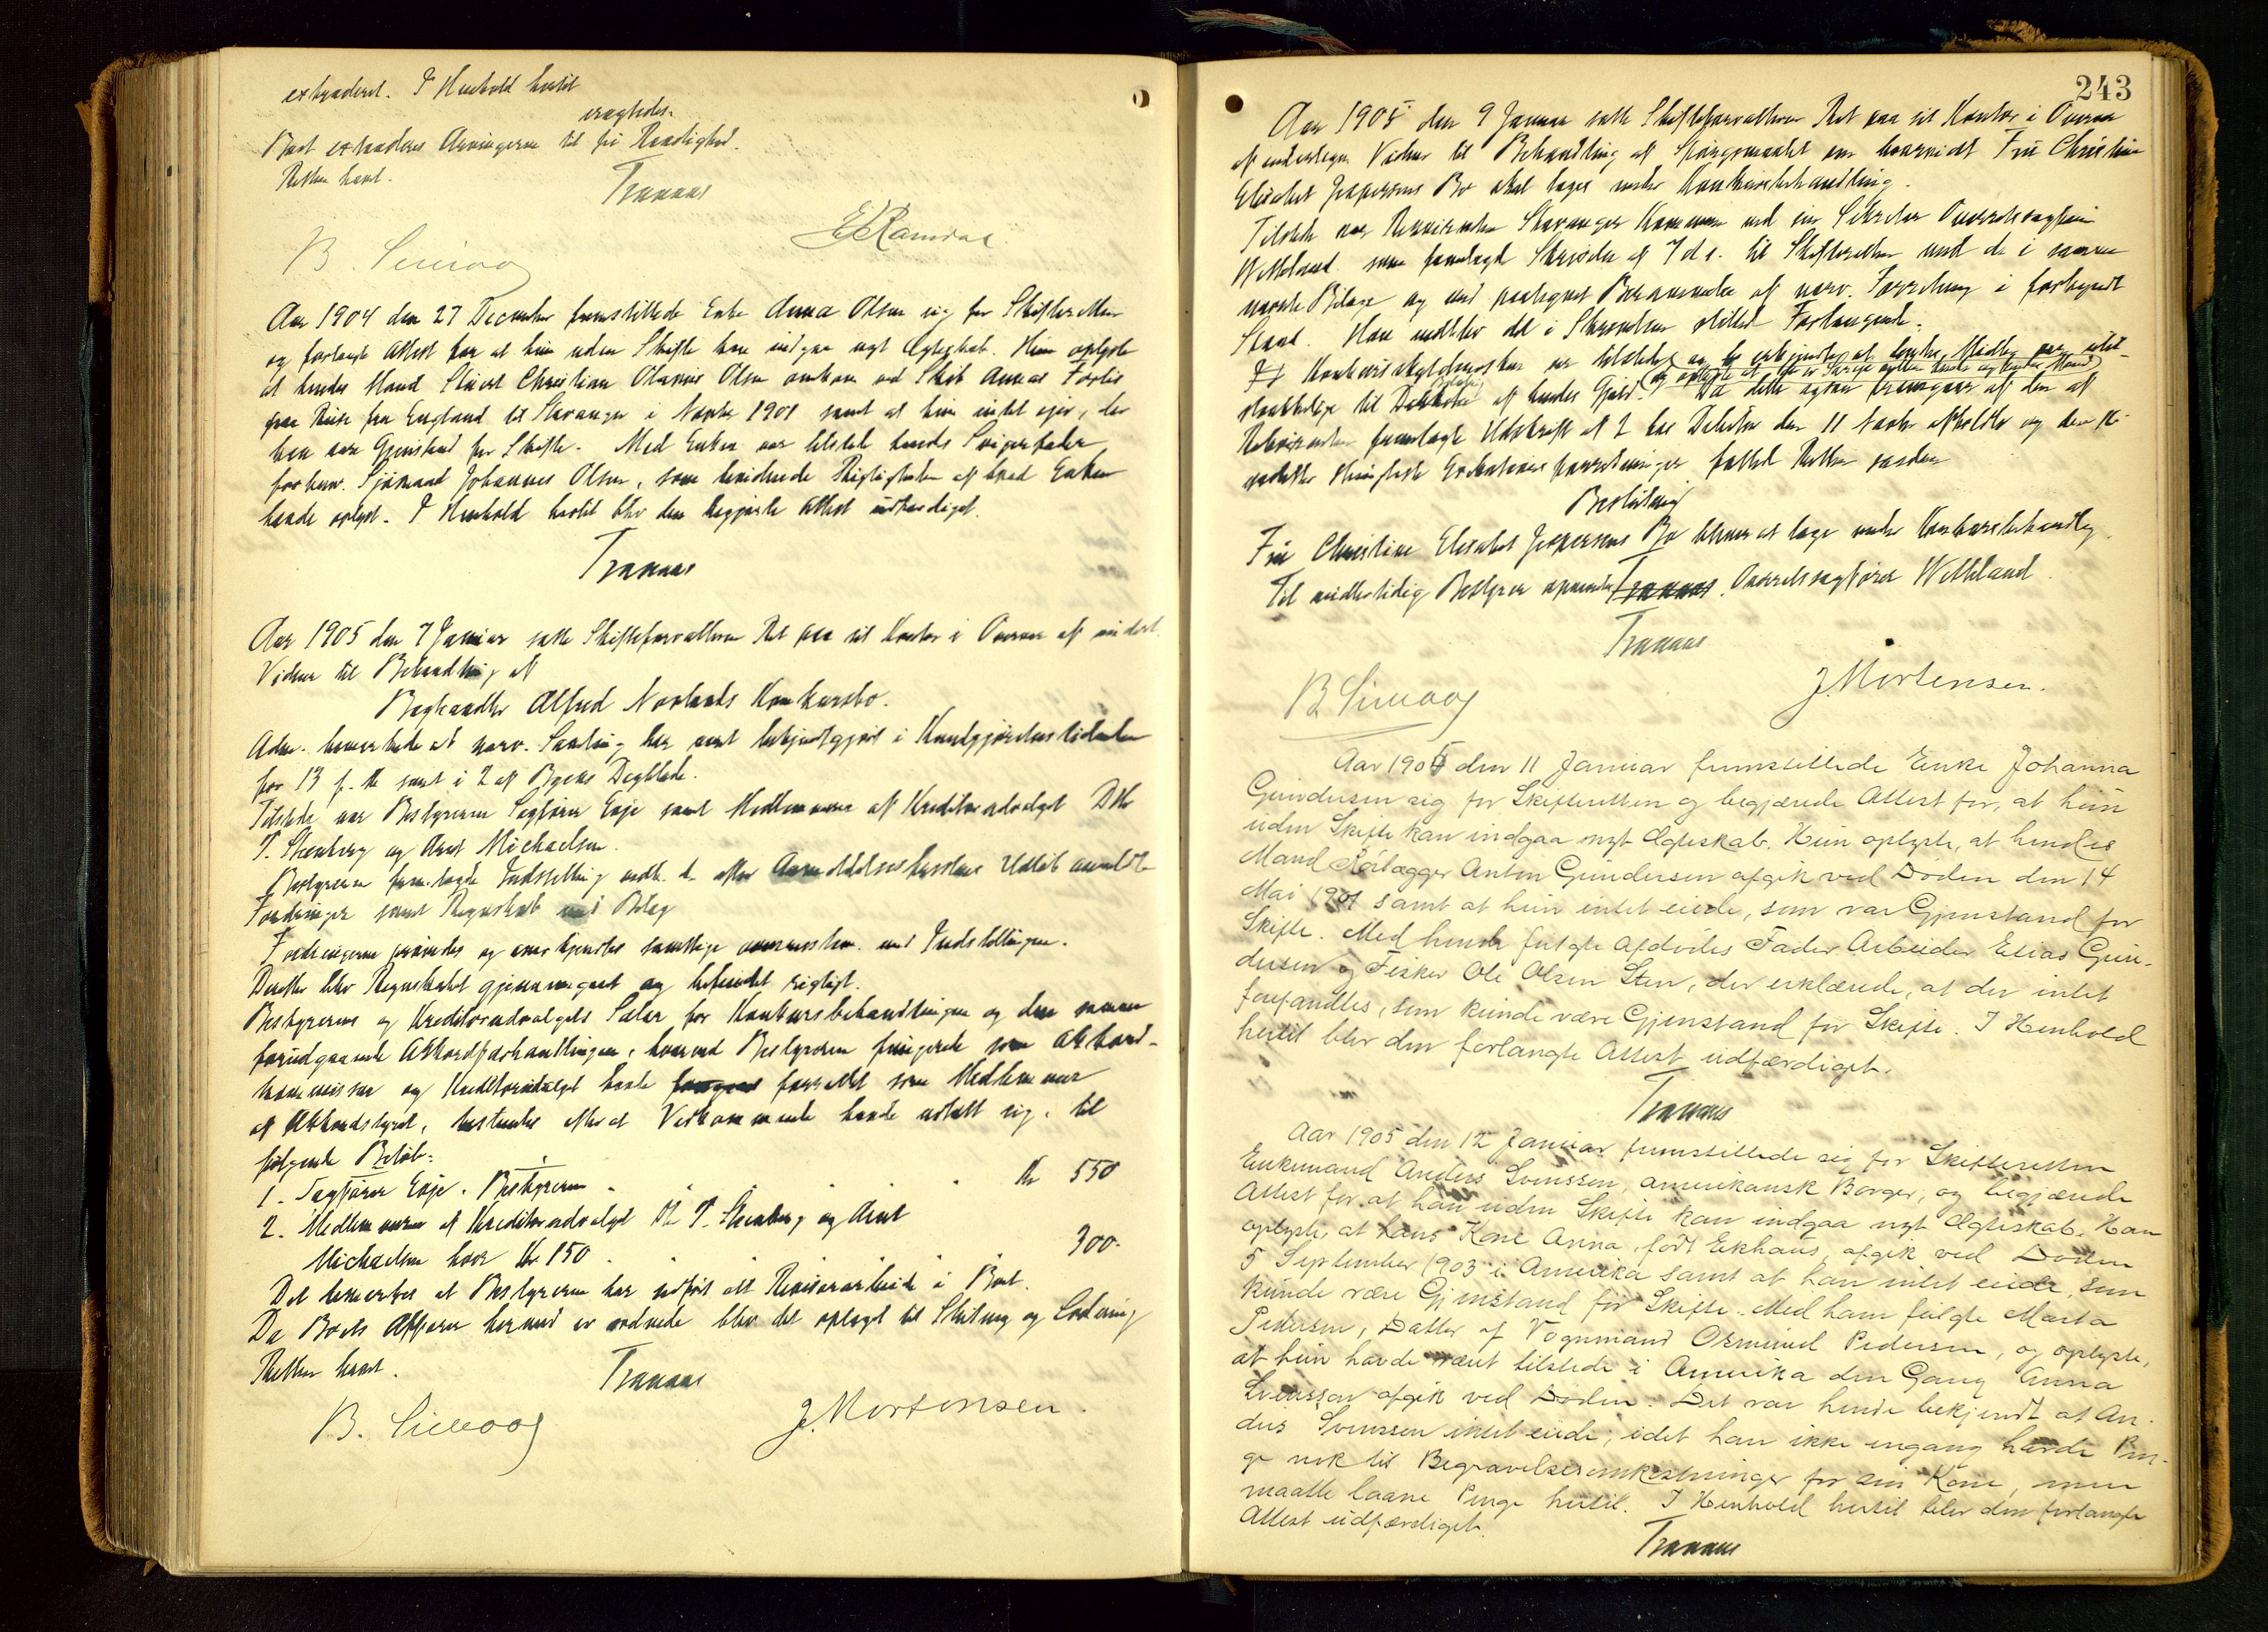 extraderet. I Henhold hertil
eragtedes:
Boet extraderes Arvingerne til fri Raadighed.
Retten hævt.
Tranaas
B. Simoog
Aar 1904 den 27 December fremstillede Enke Anna Olsen sig for Skifteretten
og forlangte Attest for at hun uden Skifte kan indgaa nyt Ægteskab. Hun oplyste
at hendes Mand Stuert Christian Olaves Olsen omkom ved Skib Annas Forlis
paa Reise fra England til Stavanger i Novbr 1901 samt at hun intet eier, der
kan være Gjenstand for Skifte. Med Enken var tilstede hendes Svigerfader
forhenv. Sjømand Johannes Olsen, som bevidnede Rigtigheden af hvad Enken
havde oplyst. I Henhold hertil blev den begjærte Attest udfærdiget.
Tranaas
Aar 1905 den 7 Januar satte Skifteforvalteren Ret paa sit Kontor i Overvær af undert.
Vidner til Behandling af
Baghandler Alfred Norlands Konkursbo.
Adm. bemærkede at nærv. Samling har været bekjendtgjort i Kundgjørelsestidende
for 13 f. M samt i 2 af Byens Dagblade.
Tilstede var Bestyreren Sagfører Exje samt Medlemmerne af Kreditorudvalget DHr
T. Stenberg og Arnt Michaelsen.
Bestyreren fremlagde Indstilling vedk. de efter Anmeldelsesfristens Udløb anmeldte
Fordringer samt Regnskab med Bilag
Fordringerne prøvedes og anerkjendtes samtlige overensstem. med Indstillingen.
Derefter blev Regnskabet gjennemgaaet og befundet rigtigt.
Bestyrerens og Kreditorudvalgets Salær for Konkursbehandlingen og den samme
forudgaaende Akkordforhandlingen, hvorved Bestyreren fungerede som Akkord-
kommissær og Kreditorudvalget havde forrettet som Medlemmer
af Akkordstyret, bestemtes efterat Vedkommende havde udtalt sig, til
følgende Beløb:
1. Sagfører Exje, Bestyreren . . . Kr 550
2. Medlemmerne af Kreditorudvalget Hr T. Stenberg og Arnt
Michaelsen hver Kr 150 . . . 300.
Det bemærkes at Bestyreren har udført alt Revisorarbeide i Boet.
Da Boets Affærer hermed er ordnede blev det optaget til Slutning og Lodning
Retten hævt.
Tranaas
B. Simoog J. Mortensen.
243
Aar 1905 den 9 Januar satte Skifteforvalteren Ret paa sit Kontor i Overvær
af undertegn. Vidner til Behandling af Spørgsmaalet om hvorvidt Fru Christine
Elisabet Jespersens Bo skal tages under Konkursbehandling.
Tilstede var Rekvirenten Stavanger Kommune ved sin Sekretær Overretssagfører
Wetteland som fremlagde Skrivelse af 7 d.s. til Skifteretten med de i samme
nævnte Bilage og med paategnet Berammelse af nærv. Forretning i forkyndt
Stand. Han vedblev det i Skrivelsen stillede Forlangende.
Konkursskyldnersken var tilstede og erkjendte at hendes Midler var util-
strækkelige til Dækkelse af hendes Gjæld. Da dette ogsaa fremgaar af den af
Rekvirenten fremlagte Udskrift af 2 hos Debitor den 11 Novbr afholdte og den 16
Beslutning
Fru Christine Elisabet Jespersens Bo bliver at tage under Konkursbehandling.
Til midlertidig Bestyrer opnævntes Overretssagfører Wetteland.
Tranaas
B Simoog J. Mortensen.
Aar 1905 den 11 Januar fremstillede Enke Johanna
Gundersen sig for Skifteretten og begjærede Attest for, at hun
uden Skifte kan indgaa nyt Ægteskab. Hun oplyste, at hendes
Mand Rørlægger Anton Gundersen afgik ved Døden den 14
Mai 1901 samt at hun intet eiede, som var Gjenstand for
Skifte. Med hende fulgte Afdødes Fader Arbeider Elias Gun-
dersen og Fisker Ole Olsen Sten, der erklærede, at der intet
forefandtes, som kunde være Gjenstand for Skifte. I Henhold
hertil blev den forlangte Attest udfærdiget.
Tranaas
Aar 1905 den 12 Januar fremstillede sig for Skifteretten
Enkemand Anders Svenssen, amerikansk Borger, og begjærede
Attest for at han uden Skifte kan indgaa nyt Ægteskab. Han
oplyste, at hans Kone Anna, født Eikhaus, afgik ved Døden
5 September 1903 i Amerika samt at han intet eiede, som
kunde være Gjenstand for Skifte. Med ham fulgte Marta
Pedersen, Datter af Vognmand Osmund Pedersen, og oplyste,
at hun havde været tilstede i Amerika den Gang Anna
Svenssen afgik ved Døden. Det var hende bekjendt at An-
ders Svenssen intet eiede, idet han ikke engang havde Pen-
ge nok til Begravelsesomkostninger for sin Kone, men
maatte laane Penge hertil. I Henhold hertil blev den forlangte
Attest udfærdiget.
Tranaas